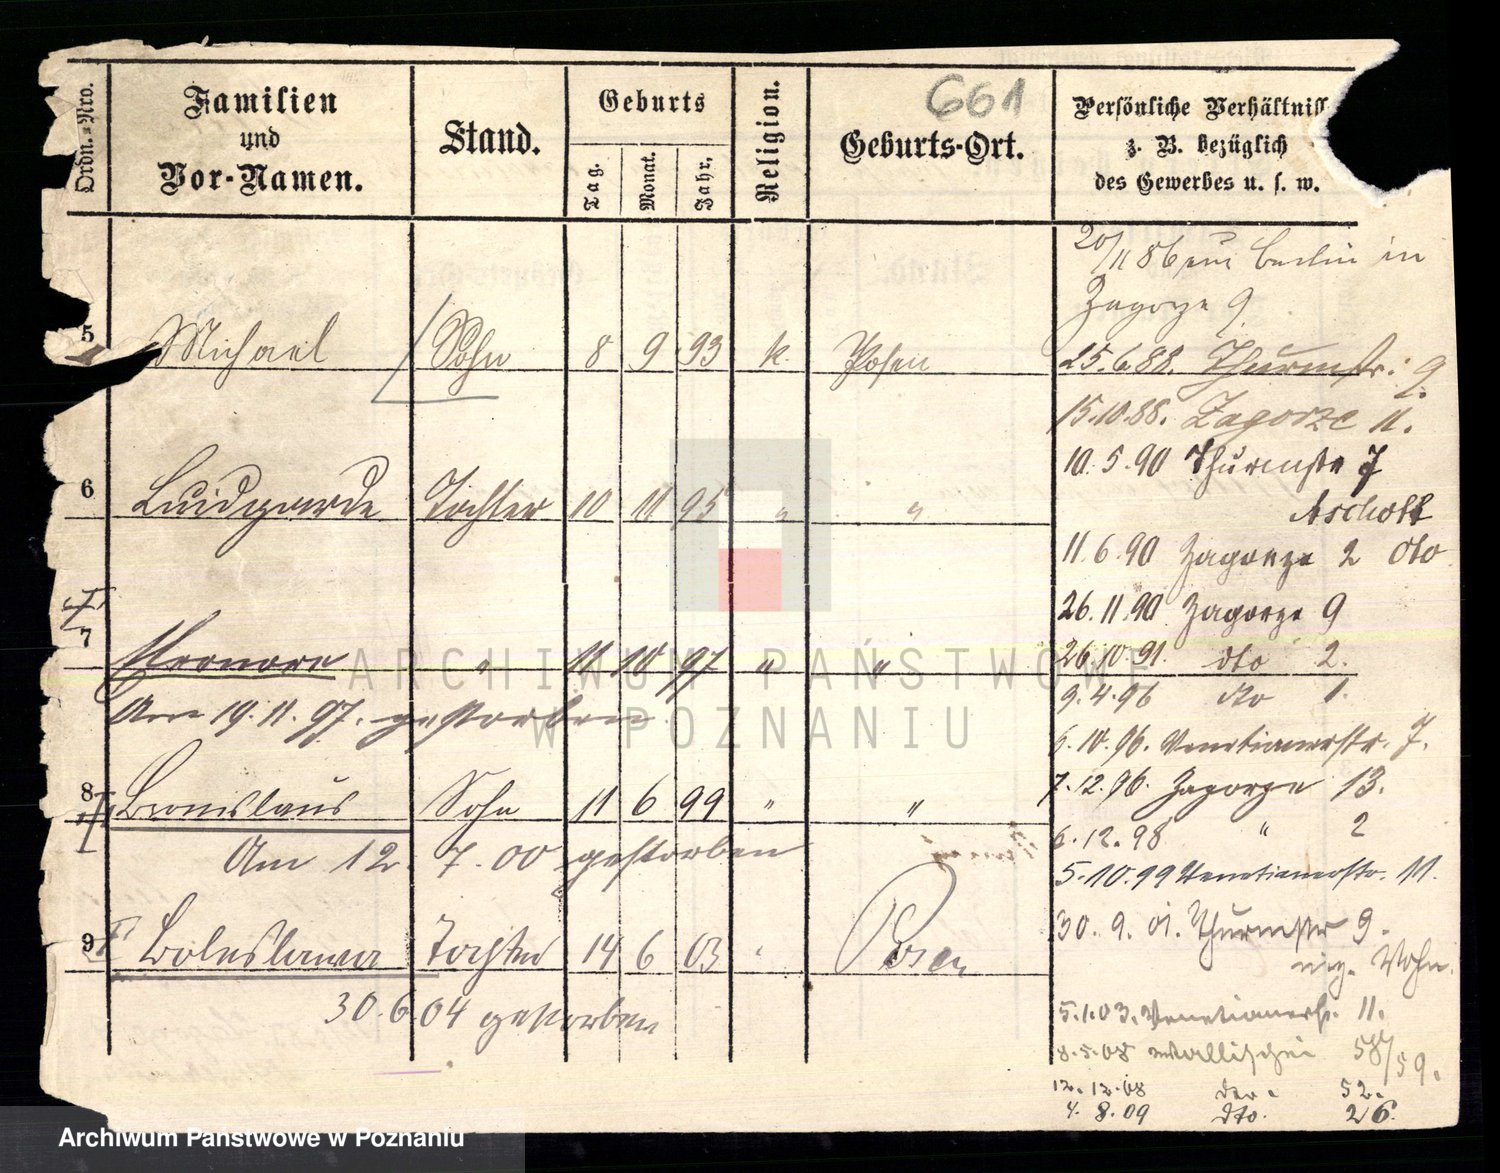 661
Ordn.=Nro.
Familien
und
Vor-Namen.
Stand.
Geburts
Tag.
Monat.
Jahr.
Religion.
Geburts-Ort.
Persönliche Verhältniss
z. B. bezüglich
des Gewerbes u. s. w.
5 Michael Sohn 8 9 93 k. Posen
6 Luidgarde Tochter 10 11 95 " "
7 Eleonore " 11 10 97 " "
Am 19. 11. 97. gestorben
8 Bronislaus Sohn 11 6 99 " "
Am 12. 7. 00 gestorben
9 Boleslawa Tochter 14 6 03 " Posen
30. 6. 04 gestorben
20/11 86 Berlin in
Zagorze 9.
25. 6. 88. Thurmstr: 9
15. 10. 88. Zagorze 11.
10. 5. 90 Thurmstr 7
Aschoff
11. 6. 90 Zagorze 2 dto
26. 11. 90 Zagorze 9
26. 10 91. dto 2.
9. 4. 96 dto 1.
5. 10. 96. Venetianerstr. 7.
7. 12. 96. Zagorze 13.
6. 12. 98 " 2
5. 10. 99 Venetianerstr. 11.
30. 9. 01. Thurmstr 9.
Wohn.
5. 1. 03. Venetianerstr. 11.
8. 5. 08 Wallischei 58/59.
12. 12. 08 52.
4. 8. 09 dto. 26.
ARCHIWUM PAŃSTWOWE
W POZNANIU
Archiwum Państwowe w Poznaniu